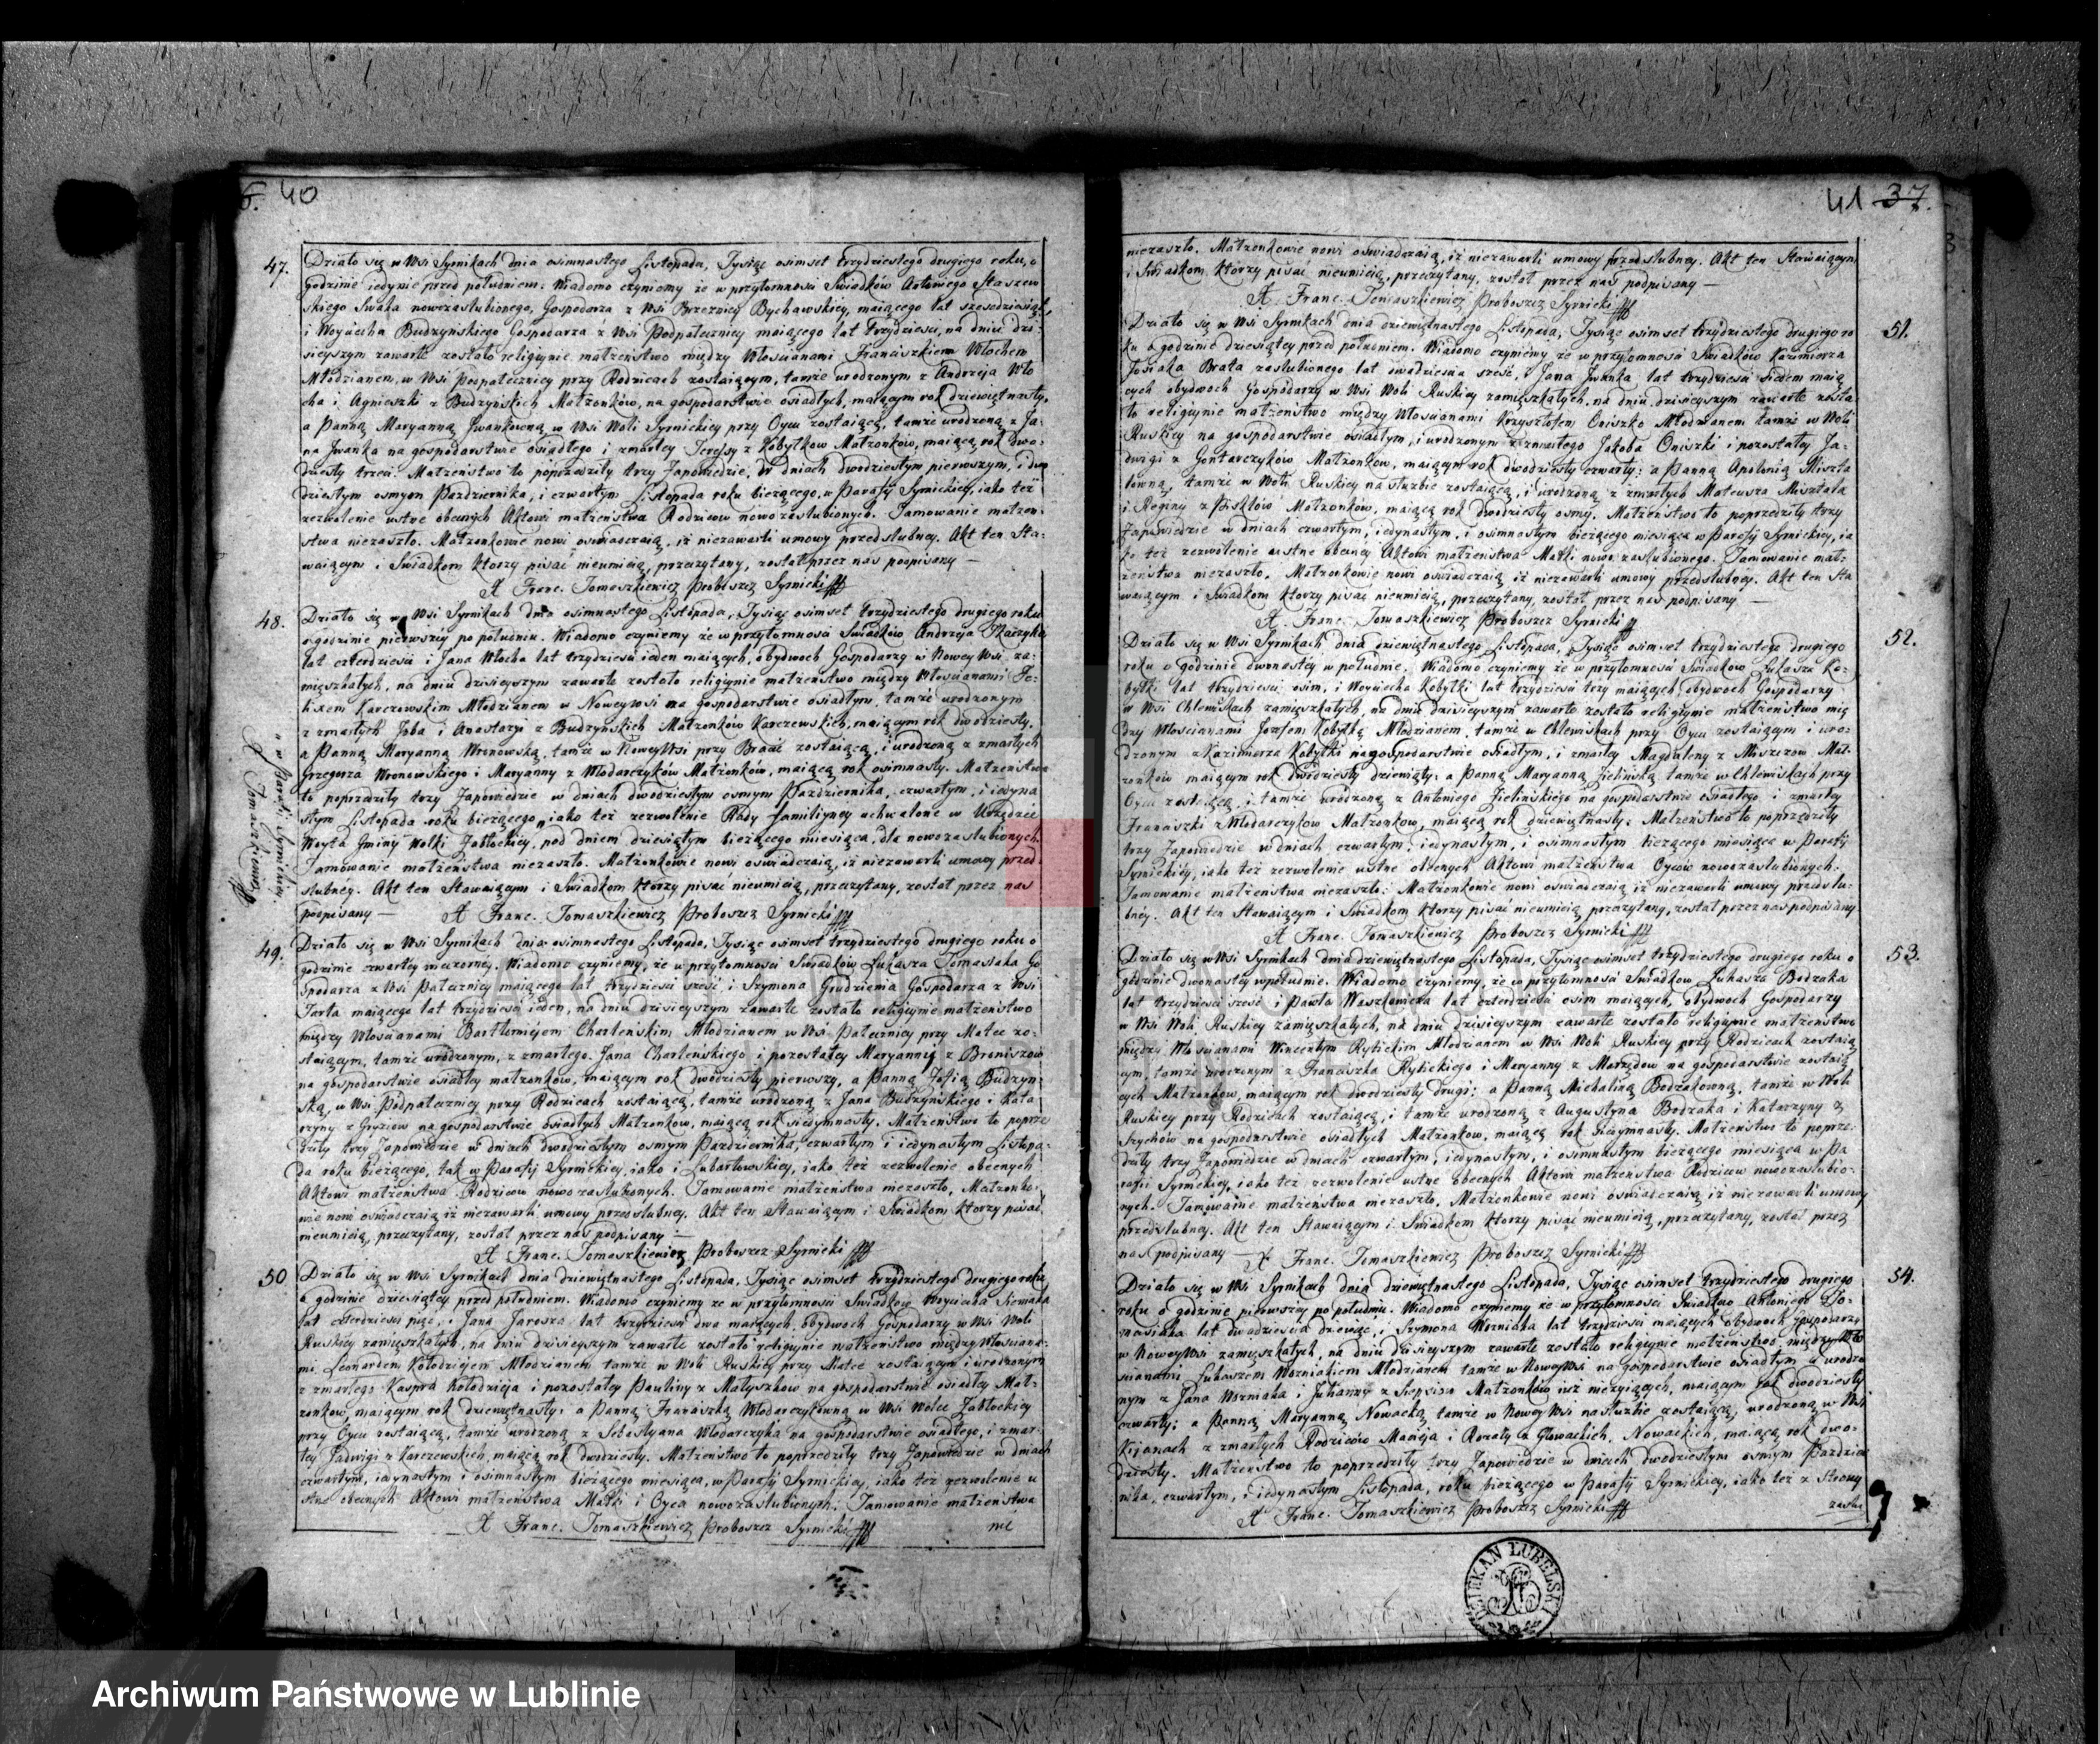 40
47.
Działo się w Wsi Syrnikach dnia osimnastego Listopada, Tysiąc osimset trzydziestego drugiego roku, o
godzinie iedynie przed południem. Wiadomo czyniemy że w przytomności Swiadków Antoniego Staszew
skiego Swaka nowozaslubionego, Gospodarza z Wsi Brzeznicy Bychawskiey, maiącego lat szescdziesiąt,
i Woyciecha Budzyńskiego Gospodarza z Wsi Podpałecznicy maiącego lat trzydziesci, na dniu dzi-
sieyszym zawarte zostało religiynie małżeństwo między Włościanami Franciszkiem Włochem
Młodzianem, w Wsi Podpałecznicy przy Rodzicach zostaiącym, tamże urodzonym z Andrzeja Wło
cha i Agnieszki z Budzyńskich Małżonków, na gospodarstwie osiadłych, maiącym rok dziewiętnasty,
a Panną Maryanną Iwankowną w Wsi Woli Syrnickiey przy Oycu zostaiącą, tamże urodzoną z Ja-
na Iwanka na gospodarstwie osiadłego i zmarłey Teressy z Kobyłkow Małżonków, maiącą rok dwu-
dziesty trzeci. Małżeństwo to poprzedziły trzy Zapowiedzie, w dniach dwódziestym pierwszym, i dwu
dziestym osmym Pazdziernika, i czwartym Listopada roku bieżącego, w Parafij Syrnickiey, iako też
zezwolenie ustne obecnych Aktowi małżeństwa Rodzicow nowozaslubionych. Tamowanie małżeń-
stwa niezaszło. Małżonkowie nowi oswiadczaią, iż niezawarli umowy przedslubney. Akt ten Sta-
waiącym i Swiadkom ktorzy pisać nieumieią, przeczytany, został przez nas podpisany —
X Franc. Tomaszkiewicz Proboszcz Syrnicki
48.
Działo się w Wsi Syrnikach dnia osimnastego Listopada, Tysiąc osimset trzydziestego drugiego roku
o godzinie pierwszey po południu. Wiadomo czyniemy że w przytomności Swiadków Andrzeja
lat czterdziesci i Jana Włocha lat trzydziesci ieden maiących, obydwoch Gospodarzy w Nowey Wsi za-
mięszkałych, na dniu dzisieyszym zawarte zostało religiynie małżeństwo między Włościanami Fe-
lixem Karczewskim Młodzianem w Nowey Wsi na gospodarstwie osiadłym, tamże urodzonym
z zmarłych Joba i Anastazyi z Budzyńskich Małżonków Karczewskich, maiącym rok dwudziesty,
a Panną Maryanną Wronowską, tamże w Nowey Wsi przy Bracie zostaiącą, i urodzoną z zmarłych
Grzegorza Wronowskiego i Maryanny z Włodarczyków Małżonków, maiącą rok osimnasty. Małżeństwo
to poprzedziły trzy Zapowiedzie w dniach dwodziestym osmym Pazdziernika, czwartym, i iedyna
stym Listopada roku bieżącego, iako też zezwolenie Rady familiyney uchwalone w Urzędzie
Woyta Gminy Wolki Zabłockiey, pod dniem dziesiątym bieżącego miesiąca, dla nowozaslubionych.
Tamowanie małżeństwa niezaszło. Małżonkowie nowi oswiadczaią, iż niezawarli umowy przed-
slubney. Akt ten Stawaiącym i Swiadkom ktorzy pisać nieumieią, przeczytany, został przez nas
podpisany — X Franc. Tomaszkiewicz Proboszcz Syrnicki
" w Parafii Syrnickiey.
X Tomaszkiewicz
49.
Działo się w Wsi Syrnikach dnia osimnastego Listopada, Tysiąc osimset trzydziestego drugiego roku o
godzinie czwartey wieczorney. Wiadomo czyniemy, że w przytomności Swiadków Łukasza Tomasiaka Go
spodarza z Wsi Pałecznicy maiącego lat trzydziesci sześć i Szymona Grudzienia Gospodarza z Wsi
Tarła maiącego lat trzydziesci ieden, na dniu dzisieyszym zawarte zostało religiynie małżeństwo
między Włościanami Bartłomiejem Charłeńskim Młodzianem w Wsi Pałecznicy przy Matce zo-
staiącym, tamże urodzonym, z zmarłego Jana Charłeńskiego i pozostałey Maryannij z Broniszow
na gospodarstwie osiadłey małżonków, maiącym rok dwodziesty pierwszy, a Panną Zofią Budzyn-
ską, w Wsi Podpałecznicy przy Rodzicach zostaiącą, tamże urodzoną z Jana Budzyńskiego i Kata
rzyny z Gryziow na gospodarstwie osiadłych Małżonkow, maiącą rok siedymnasty. Małżeństwo to poprze
dziły trzy Zapowiedzie w dniach dwodziestym osmym Pazdziernika, czwartym i iedynastym Listopa-
da roku bieżącego, tak w Parafij Syrnickiey, iako i Lubartowskiey, iako też zezwolenie obecnych
Aktowi małżeństwa Rodzicow nowozaslubionych. Tamowanie małżeństwa niezaszło, Małżonko-
wie nowi oswiadczaią iż niezawarli umowy przedslubney. Akt ten Stawaiącym i Swiadkom ktorzy pisać
nieumieią, przeczytany, został przez nas podpisany —
X Franc. Tomaszkiewicz Proboszcz Syrnicki
50
Działo się w Wsi Syrnikach dnia dziewiętnastego Listopada, Tysiąc osimset trzydziestego drugiego roku,
o godzinie dziesiątey przed południem. Wiadomo czyniemy że w przytomności Swiadków Woyciecha
lat czterdziesci pięć, i Jana Jarosza lat trzydziesci dwa maiących, obydwoch Gospodarzy w Wsi Woli
Ruskiey zamięszkałych, na dniu dzisieyszym zawarte zostało religiynie małżeństwo między Włościana-
mi Leonardem Kołodziejem Młodzianem tamże w Woli Ruskiey przy Matce zostaiącym i urodzonym
z zmarłego Kaspra Kołodzieja i pozostałey Pauliny z Matyszkow na gospodarstwie osiadłey Mał-
żonkow, maiącym rok dziewiętnasty: a Panną Franciszką Włodarczykowną w Wsi Wolce Zabłockiey
przy Oycu zostaiącą, tamże urodzoną z Sebestyana Włodarczyka na gospodarstwie osiadłego, i zmar-
łey Jadwigi z Karczewskich, maiącą rok dwudziesty. Małżeństwo to poprzedziły trzy Zapowiedzie w dniach
czwartym, iedynastym i osimnastym bieżącego miesiąca, w Parafij Syrnickiey, iako też zezwolenie u
stne obecnych Aktowi małżeństwa Matki i Oyca nowozaslubionych. Tamowanie małżeństwa
X Franc. Tomaszkiewicz Proboszcz Syrnicki nie
41 37.
niezaszło. Małżonkowie nowi oswiadczaią, iż niezawarli umowy przedslubney. Akt ten Stawaiącym
i Swiadkom, ktorzy pisać nieumieią, przeczytany, został przez nas podpisany —
X Franc. Tomaszkiewicz Proboszcz Syrnicki
51.
Działo się w Wsi Syrnikach dnia dziewiętnastego Listopada, Tysiąc osimset trzydziestego drugiego ro
ku o godzinie dziesiątey przed południem. Wiadomo czyniemy że w przytomności Swiadków Kazimierza
Josiaka Brata zaslubionego lat dwadziescia sześć, i Jana Iwanka lat trzydziesci siedem maią
cych obydwoch Gospodarzy w Wsi Woli Ruskiey zamięszkałych, na dniu dzisieyszym zawarte zosta
ło religiynie małżeństwo między Włościanami Krzysztofem Oniszko Młodzianem tamże w Woli
Ruskiey na gospodarstwie osiadłym, i urodzonym z zmarłego Jakoba Oniszki i pozostałey Ja-
dwigi z Gontarczyków Małżonkow, maiącym rok dwodziesty czwarty: a Panną Apolonią Miszta
łowną, tamże w Woli Ruskiey na służbie zostaiącą, i urodzoną z zmarłych Mateusza Misztala
i Reginy z Małżonków, maiącą rok dwodziesty osmy. Małżeństwo to poprzedziły trzy
Zapowiedzie w dniach czwartym, iedynastym, i osimnastym bieżącego miesiąca w Parafij Syrnickiey, ia
ko też zezwolenie ustne obecney Aktowi małżeństwa Matki nowozaslubionego. Tamowanie mał-
żeństwa niezaszło. Małżonkowie nowi oswiadczaią iż niezawarli umowy przedslubney. Akt ten Sta
waiącym i Swiadkom ktorzy pisać nieumieią, przeczytany, został przez nas podpisany —
X Franc. Tomaszkiewicz Proboszcz Syrnicki
52.
Działo się w Wsi Syrnikach dnia dziewiętnastego Listopada, Tysiąc osimset trzydziestego drugiego
roku o godzinie dwunastey w południe. Wiadomo czyniemy że w przytomności Swiadkow Łukasza Ko-
byłki lat trzydziesci osim, i Woyciecha Kobyłki lat trzydziesci trzy maiących, obydwoch Gospodarzy
w Wsi Chlewiskach zamięszkałych, na dniu dzisieyszym zawarte zostało religiynie małżeństwo mię
dzy Włościanami Jozefem Kobyłką Młodzianem, tamże w Chlewiskach przy Oycu zostaiącym i uro-
dzonym z Kazimierza Kobyłki na gospodarstwie osiadłym, i zmarłey Magdaleny z Miszczow Mał-
żonków maiącym rok dwodziesty dziewiąty: a Panną Maryanną Zielińską tamże w Chlewiskach przy
Oycu zostaiącą, i tamże urodzoną z Antoniego Zielińskiego na gospodarstwie osiadłego i zmarłey
Franciszki z Włodarczykow Małżonkow, maiącą rok dziewiętnasty. Małżeństwo to poprzedziły
trzy Zapowiedzie w dniach czwartym, iedynastym, i osimnastym bieżącego miesiąca w Parafij
Syrnickiey, iako też zezwolenie ustne obecnych Aktowi małżeństwa Oyców nowozaslubionych.
Tamowanie małżeństwa niezaszło: Małżonkowie nowi oswiadczaią iż niezawarli umowy przedslu-
bney. Akt ten Stawaiącym i Swiadkom ktorzy pisać nieumieią, przeczytany, został przez nas podpisany
X Franc. Tomaszkiewicz Proboszcz Syrnicki
53.
Działo się w Wsi Syrnikach dnia dziewiętnastego Listopada, Tysiąc osimset trzydziestego drugiego roku o
godzinie dwunastey w południe. Wiadomo czyniemy, że w przytomności Swiadkow Łukasza Bodzaka
lat trzydziesci sześć i Pawła Waszkowicza lat czterdziesci osim maiących, obydwoch Gospodarzy
w Wsi Woli Ruskiey zamięszkałych, na dniu dzisieyszym zawarte zostało religiynie małżeństwo
między Włościanami Wincentym Rylickim Młodzianem w Wsi Woli Ruskiey przy Rodzicach zostaią
cym, tamże urodzonym z Franciszka Rylickiego i Maryanny z Mazędow na gospodarstwie zostaią
cych Małżonkow, maiącym rok dwodziesty drugi: a Panną Michaliną Bodzakowną, tamże w Woli
Ruskiey przy Rodzicach zostaiącą, i tamże urodzoną z Augustyna Bodzaka i Katarzyny z
Szychow na gospodarstwie osiadłych Małżonkow, maiącą rok siedymnasty. Małżeństwo to poprze-
dziły trzy Zapowiedzie w dniach czwartym, iedynastym, i osimnastym bieżącego miesiąca w Pa
rafii Syrnickiey, iako też zezwolenie ustne obecnych Aktowi małżeństwa Rodzicow nowozaslubio-
nych. Tamowanie małżeństwa niezaszło. Małżonkowie nowi oswiadczaią iż niezawarli umowy
przedslubney. Akt ten Stawaiącym i Swiadkom ktorzy pisać nieumieią, przeczytany, został przez
nas podpisany — X Franc. Tomaszkiewicz Proboszcz Syrnicki
54.
Działo się w Wsi Syrnikach dnia dziewiętnastego Listopada, Tysiąc osimset trzydziestego drugiego
roku o godzinie pierwszey po południu. Wiadomo czyniemy że w przytomności Swiadkow Antoniego To-
masiaka lat dwadziescia dziewięć, i Szymona Wozniaka lat trzydziesci maiących obydwoch gospodarzy
w Nowey Wsi zamięszkałych, na dniu dzisieyszym zawarte zostało religiynie małżeństwo między Wło
ścianami Łukaszem Wozniakiem Młodzianem tamże w Nowey Wsi na gospodarstwie osiadłym i urodzo
nym z Jana Wozniaka i Julianny z Małżonków iuż nieżyiących, maiącym rok dwodziesty
czwarty: a Panną Maryanną Nowacką tamże w Nowey Wsi na służbie zostaiącą, urodzoną w Wsi
Kijanach z zmarłych Rodziców Macieja i Rozały z Głowackich, Nowackich, maiącą rok dwo-
dziesty. Małżeństwo to poprzedziły trzy Zapowiedzie w dniach dwodziestym osmym Pazdzier
nika, czwartym, i iedynastym Listopada, roku bieżącego w Parafij Syrnickiey, iako też z Strony
X Franc. Tomaszkiewicz Proboszcz Syrnicki zaslu
DZIEKAN LUBELSKI
Archiwum Państwowe w Lublinie